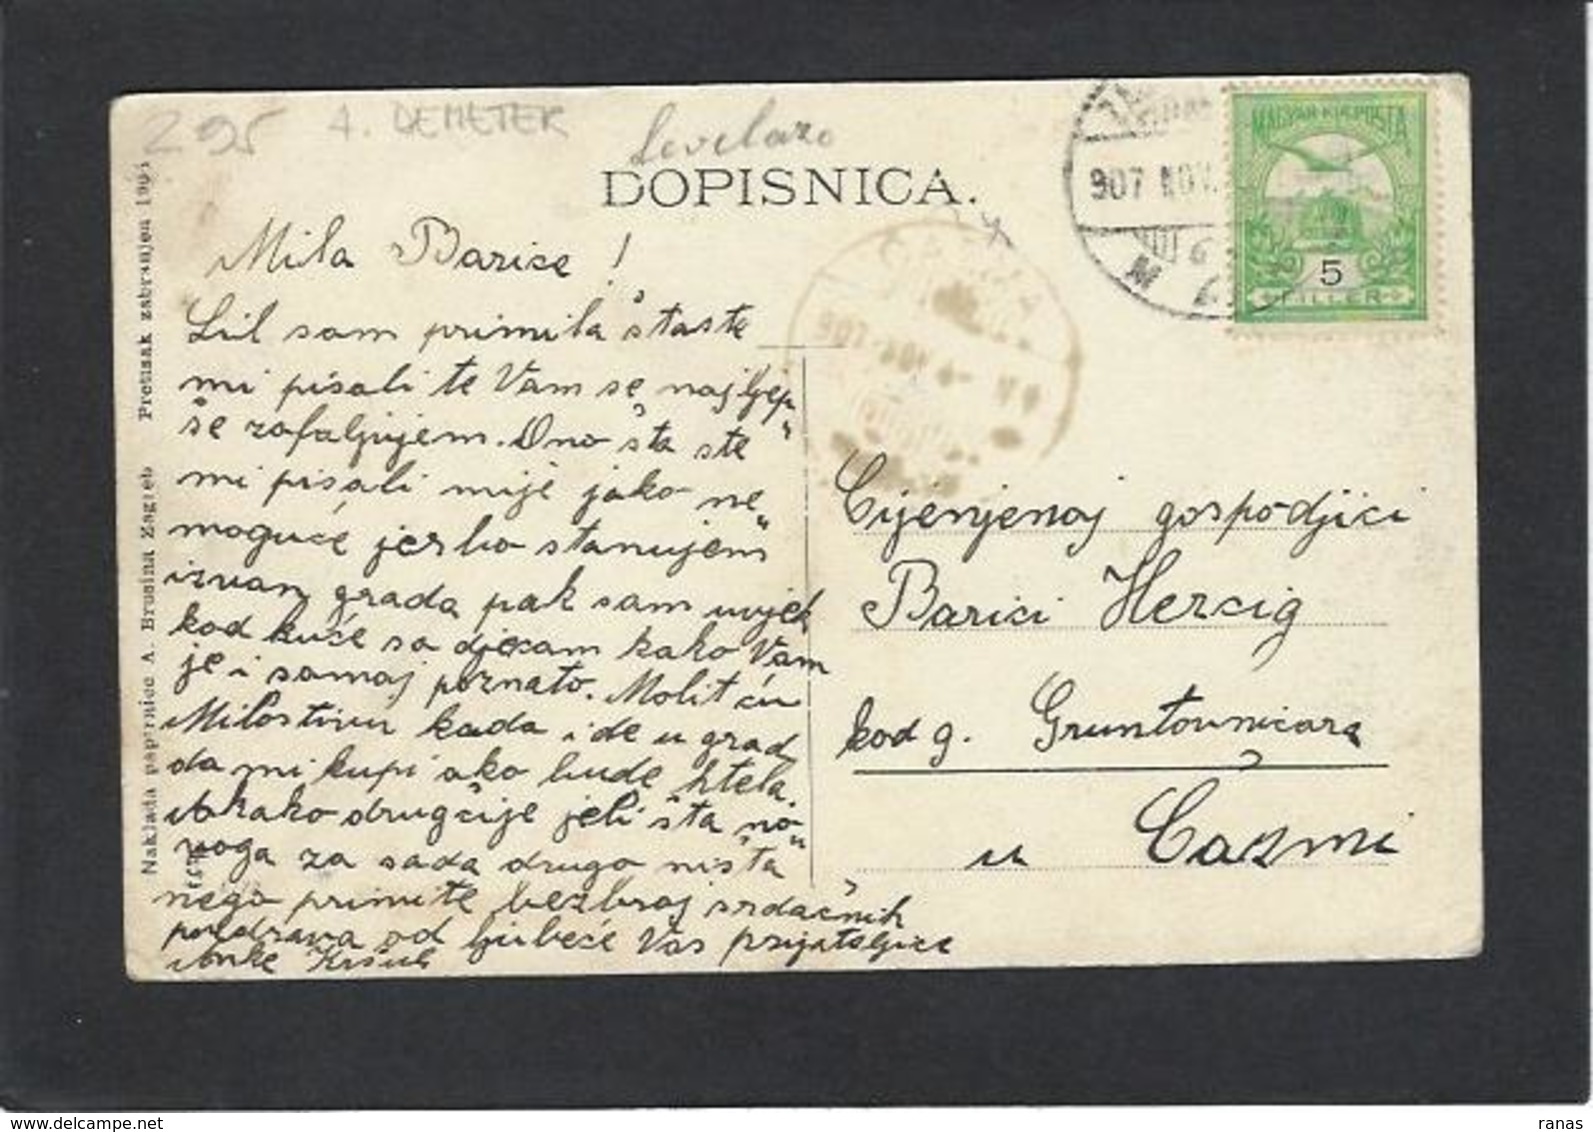 295
A. DEMETER
DOPISNICA.
907 NOV.
MAGYAR KIR. POSTA
5
FILLER
Mila Barice!
List sam primila šta ste
mi pisali te Vam se najljep„
še zafaljujem. Ono šta ste
mi pisali mije jako ne„
moguće jerbo stanujem
izvan grada pak sam uvjek
kod kuće sa djecam kako Vam
je i samaj poznato. Molit ću
Milostivu kada ide u grad
da mi kupi ako bude htela.
Akako drugčije jeli šta no„
voga za sada drugo ništa
nego primite bezbroj srdačnih
pozdrava od ljubeće Vas prijateljice
Anke
Cijenjenoj gospodjici
Barici Hercig
kod g. Gruntovničara
u Čazmi
Naklada papirnice A. Brusina Zagreb Pretisak zabranjen
ranas
www.delcampe.net